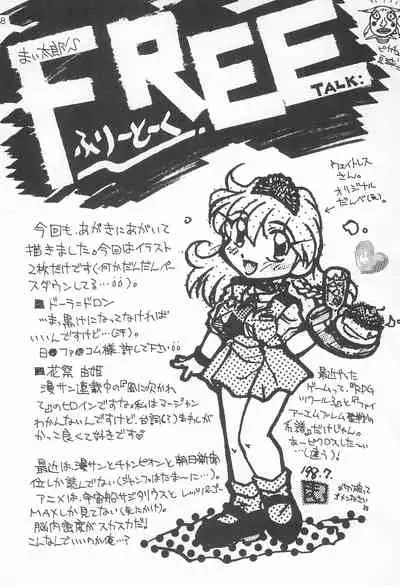 8
まい太郎の
FREE
TALK:
ふりーとーく
ウェイトレス
さん。
オリジナル
だんべ(笑)。
今回も、あがきにあがいて
描きました。今回はイラスト
2枚だけですぐ何かだんだんペー
スダウンしてる…。
■ドーラ=ドロン
…ま、黒けになってなければ
いいんですけど…(汗)。
許して下さい
■花祭
漫サン連載中の『風に吹かれ
て』のヒロインですな。私はマージャン
わかんないんですけど、台詞
かっこ良くて好きです。
最近は、漫サンとチャンピオンと朝日新聞
位しか読んでない(ジャンプはたまーに…)。
アニメは、宇宙船サジタリウスとレッツ&ゴー
MAXしか見てない(見たかけ)。
脳内密度がスカスカだ!
こんなでいいのか俺…?
最近やった
ゲームって、『RPG
ツクール3』と『ファイ
アーエムブレム
系譜』だけじゃん。
あーピクロスしたー
い…(違う)!
'98.7.